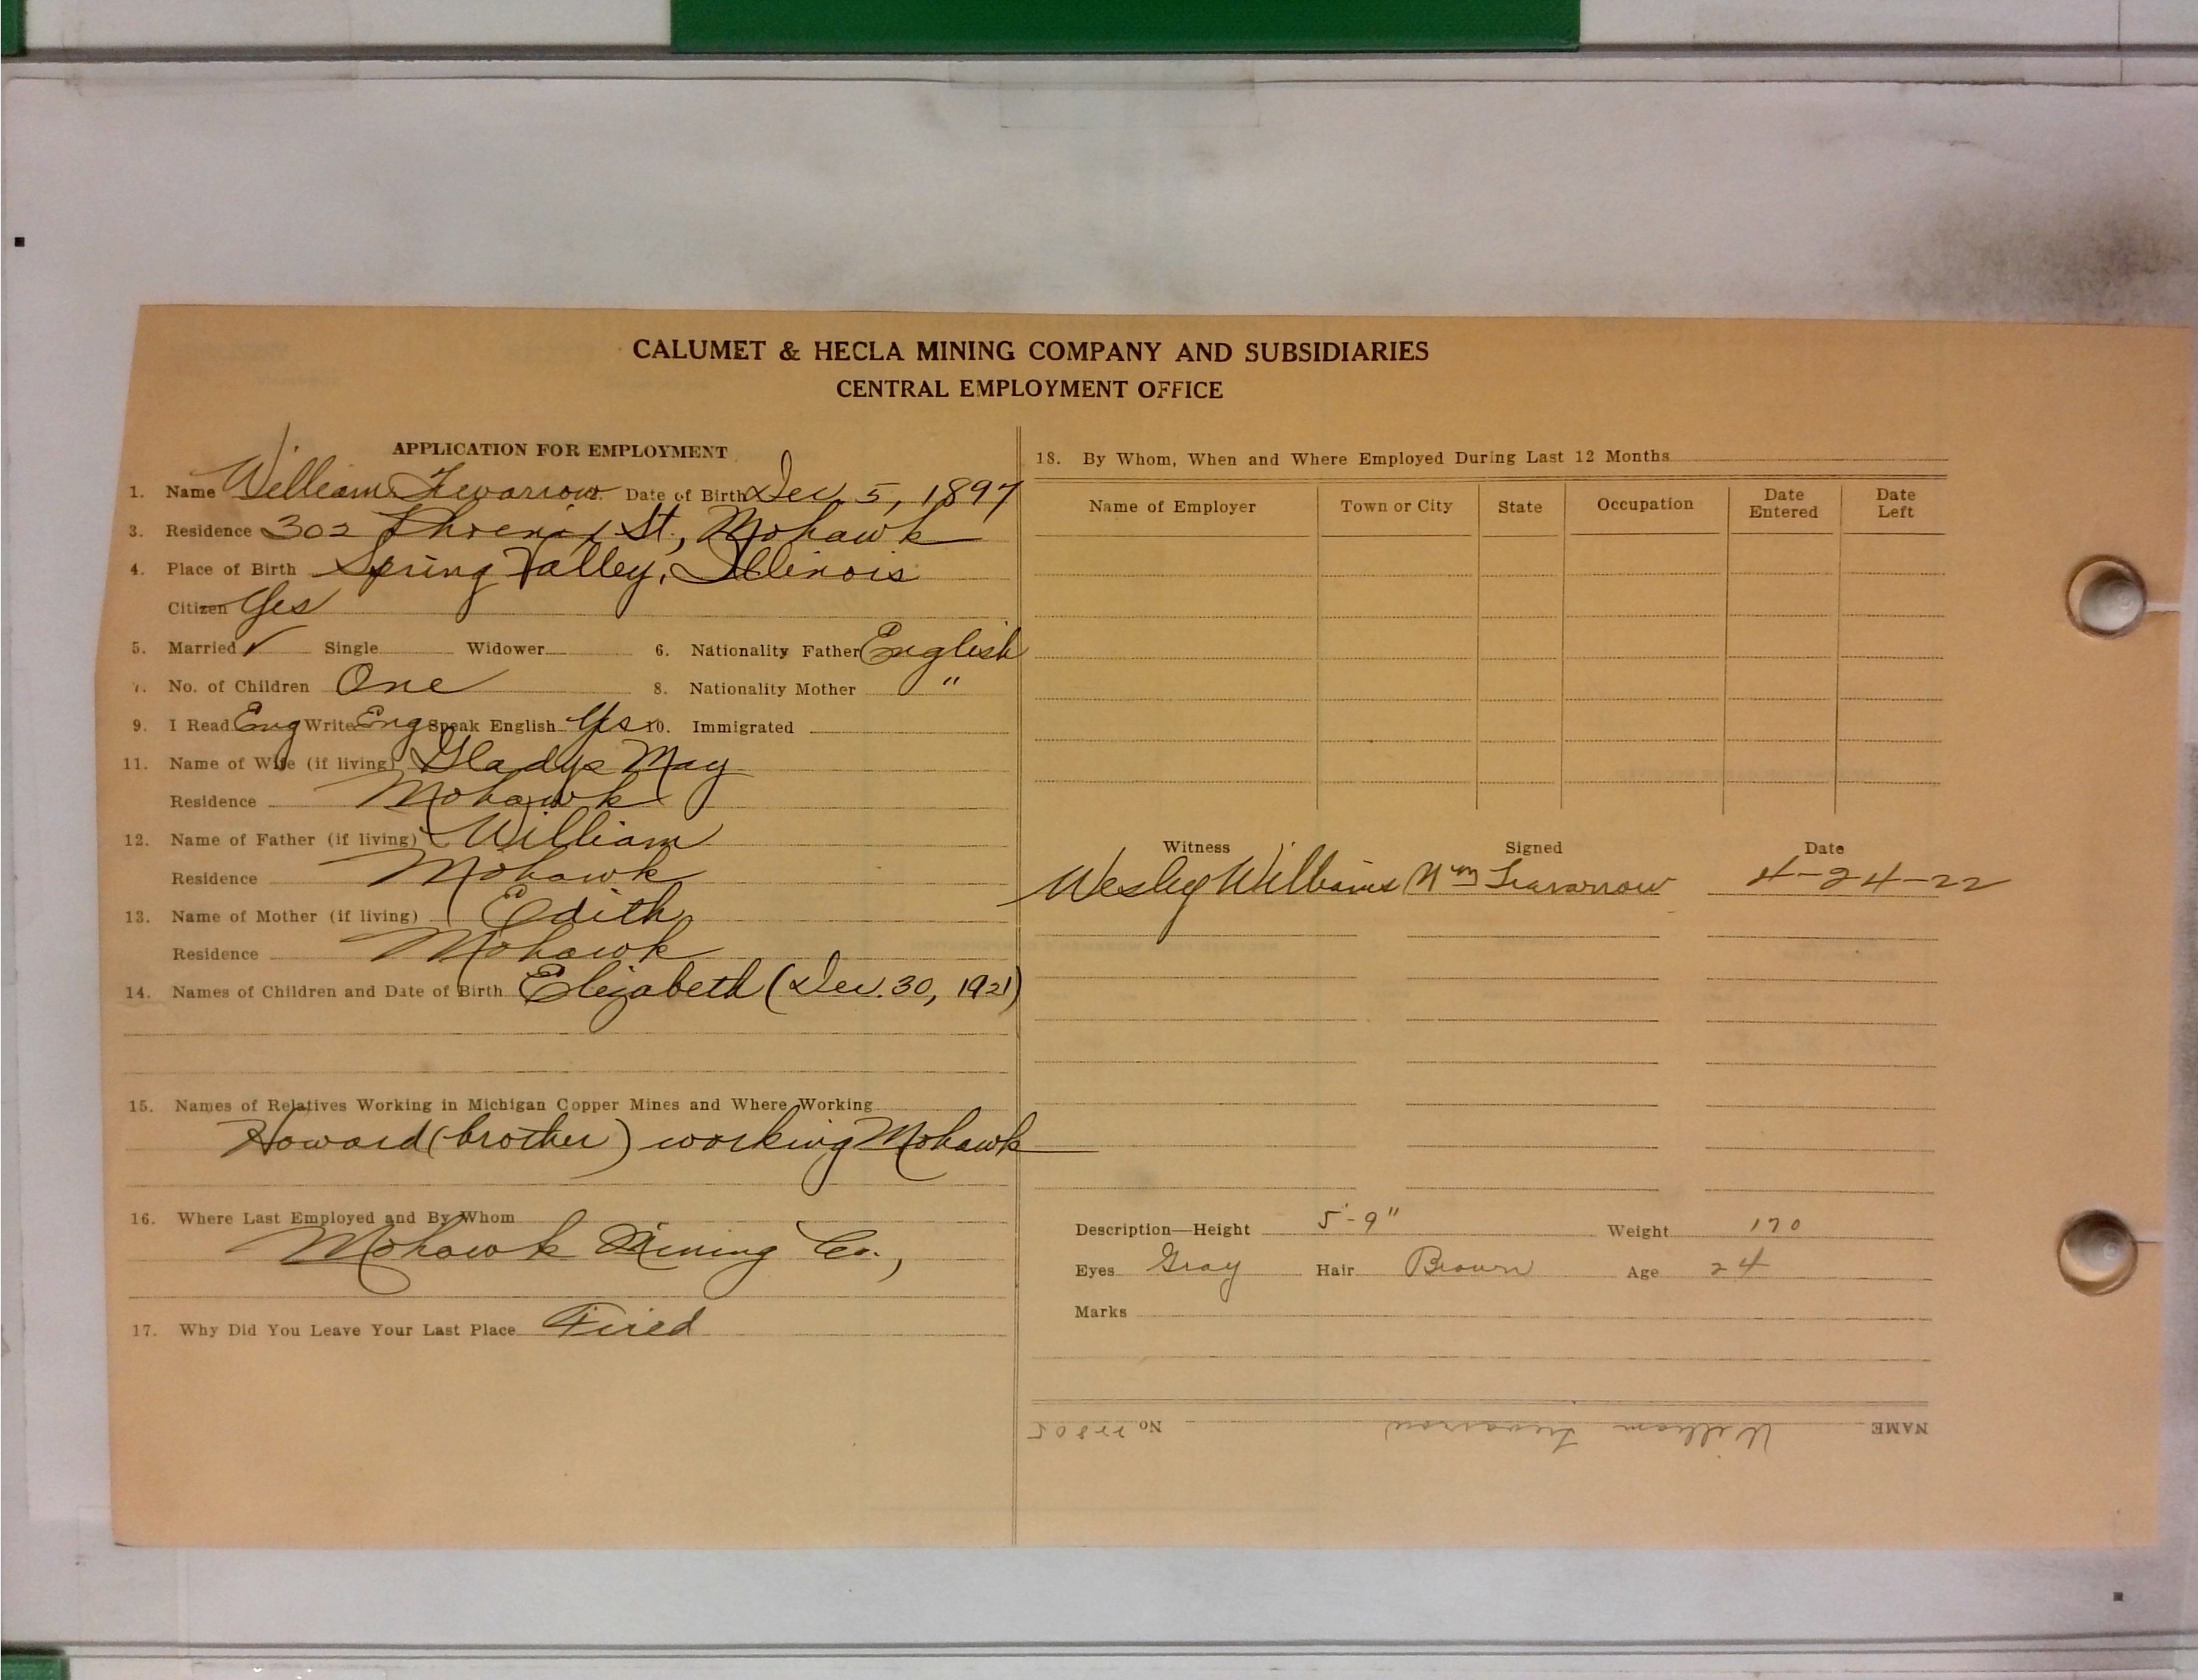 CALUMET & HECLA MINING COMPANY AND SUBSIDIARIES
CENTRAL EMPLOYMENT OFFICE
APPLICATION FOR EMPLOYMENT
1. Name William Date of Birth Dec. 5, 1897
3. Residence 302 Phoenix St., Mohawk
4. Place of Birth Spring Valley, Illinois
Citizen Yes
5. Married ✓ Single Widower 6. Nationality Father English
7. No. of Children One 8. Nationality Mother "
9. I Read Eng Write Eng Speak English Yes 10. Immigrated
11. Name of Wife (if living) Gladys May
Residence Mohawk
12. Name of Father (if living) William
Residence Mohawk
13. Name of Mother (if living) Edith
Residence Mohawk
14. Names of Children and Date of Birth Elizabeth (Dec. 30, 1921)
15. Names of Relatives Working in Michigan Copper Mines and Where Working
Howard (brother) working Mohawk
16. Where Last Employed and By Whom
Mohawk Mining Co.,
17. Why Did You Leave Your Last Place Fired
18. By Whom, When and Where Employed During Last 12 Months
Name of Employer Town or City State Occupation Date Entered Date Left
Witness Signed Date
Wesley Williams Wm 4-24-22
Description—Height 5'-9" Weight 170
Eyes Gray Hair Brown Age 24
Marks
NAME William No